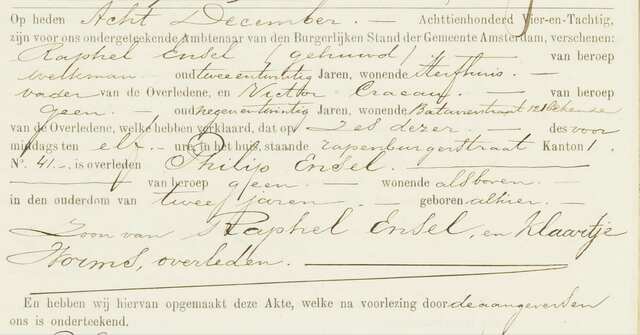 Op heden Acht December. — Achttienhonderd Vier-en-Tachtig,
zijn voor ons ondergeteekende Ambtenaar van den Burgerlijken Stand der Gemeente Amsterdam, verschenen:
Raphel Ensel (gehuwd) — van beroep
melkman — oud tweeentwintig Jaren, wonende sterfhuis. —
vader van de Overledene, en Victor — van beroep
geen. — oud negenentwintig Jaren, wonende Batavierstraat 12 bekende
van de Overledene, welke hebben verklaard, dat op Zes dezer. — des voor
middags ten elf. — ure, in het huis, staande rapenburgerstraat Kanton 1.
N°. 41. —. is overleden Philip Ensel. —
— van beroep geen. — wonende als boven. —
in den ouderdom van twee jaren. — geboren alhier. —
Zoon van Raphel Ensel, en Klaartje
Worms, overleden. —
En hebben wij hiervan opgemaakt deze Akte, welke na voorlezing door de aangevers en
ons is onderteekend.